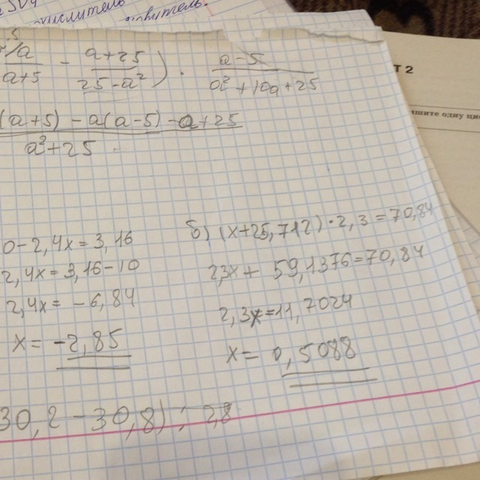 числитель
a/a+5 - a+25/25-a²) · a-5/a²+10a+25
(a+5) - a(a-5) - a+25
a²+25
0-2,4x=3,16
2,4x=3,16-10
2,4x = -6,84
x= -2,85
б) (x+25,712) · 2,3=70,84
2,3x+ 59,1376=70,84
2,3x=11,7024
x= 0,5088
30,2-30,8) : 2,8
Т 2
ишите одну ци